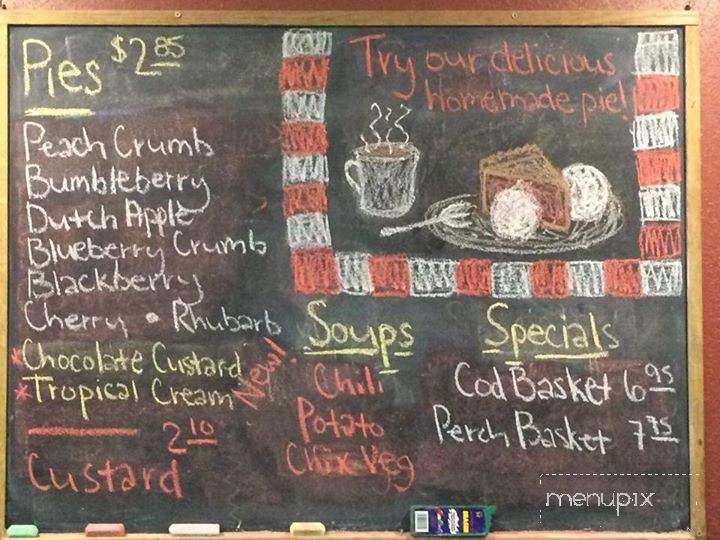 Pies $2.85
Peach Crumb
Bumbleberry
Dutch Apple
Blueberry Crumb
Blackberry
Cherry • Rhubarb
*Chocolate Custard
*Tropical Cream
New!
2.10
Custard
Try our delicious
homemade pie!
Soups
Chili
Potato
Chix Veg
Specials
Cod Basket 6.95
Perch Basket 7.95
menupix